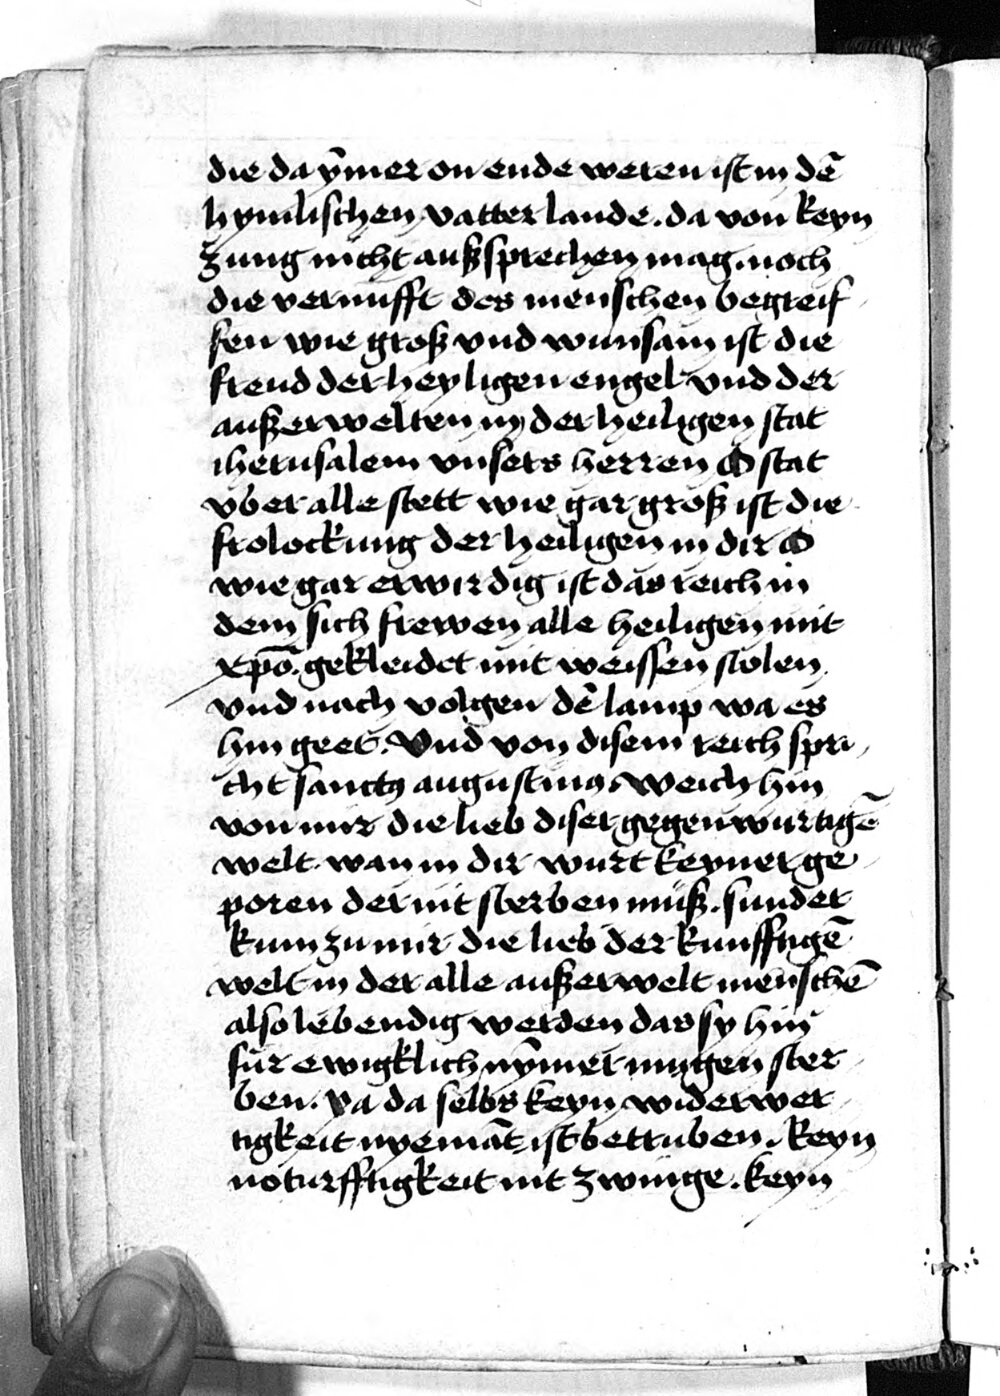 die da ȳmer on ende weren ist in dē
hymlischen vatter lande. da von keyn
zung nicht außsprechen mag. noch
die vernufft des menschen begreif
fen wie groß vnd wunsam ist die
freud der heyligen engel vnd der
außerwelten in der heiligen stat
iherusalem vnsers herren O stat
vber alle stett wie gar groß ist die
frolockung der heiligen in dir O
wie gar erwirdig ist das reich in
dem sich frewen alle heiligen mit
xpō. gekleidet mit weissen stolen
vnd nach volgen dē lamp wa es
hin geet. Vnd von disem reich spri
cht sanctꝰ augustinꝰ. weich hin
von mir die lieb diser gegenwurtigē
welt. wan in dir wurt keyner ge
poren der nit sterben muß. sunder
kum zu mir die lieb der kunfftigē
welt in der alle außerwelt menschē
also lebendig werden das sy hin
fur ewigklich nȳmer mugen ster
ben. Va da selbs keyn widerwer
tigkeit nyemāt ist betruben. Keyn
noturfftigkeit nit zwinge. keyn